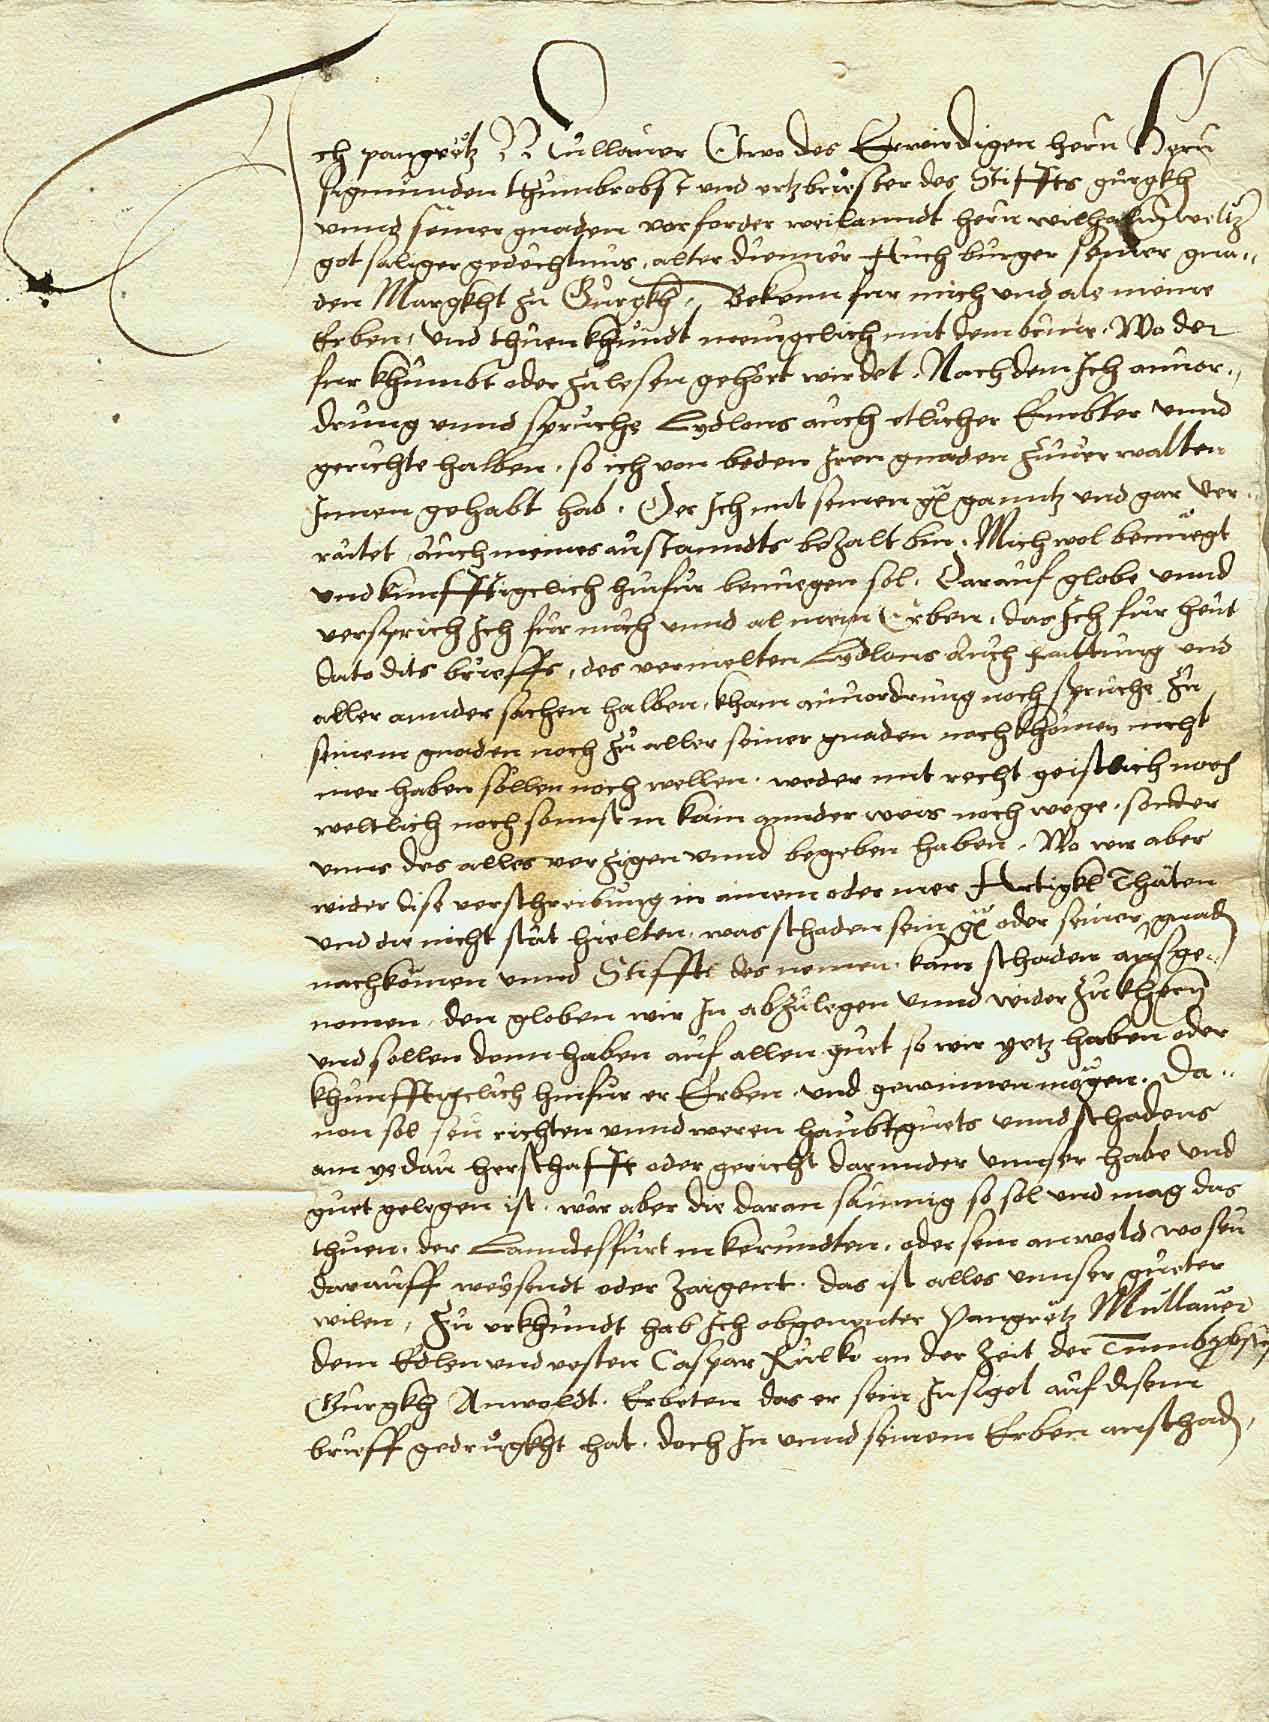 Ich pangrëtz Mullauer Etwo des Erwirdigen hern Hern
sigmunden thumbrobst und ertzbriester des Stiffts gurgkh
unnd seiner gnaden vorforder weilanndt hern wilhalm weltz
got saliger gedechtnus, alter dienner Auch burger seiner gna-
den Margkht zu Gurgkh. Bekenn fur mich und als meine
Erben, und thuen khundt menigclich mit dem brieve. Wo der
fur khumbt oder zu lesen gehört wirdet. Nach dem Ich annor-
drung unnd spruche Lydlons auch etlicher Embter unnd
gerichte halben, so ich von beden Iren gnaden zuverwalten
Innen gehabt hab. Der Ich mit seinen gn ganntz und gar ver-
raitet, auch meines austanndts bezalt bin. Mich wol benuegt
und kunfftigclich hinfur benuegen sol. Darauf globe unnd
versprich Ich fur mich unnd al mein Erben, das Ich fur heut
dato dits brieffs, des vermelten Lydlons auch raittung und
aller annder sachen halben, kham annordrung noch spruche zu
seinem gnaden noch zu aller seiner gnaden nachkhomen nicht
mer haben söllen noch wellen. weder mit recht geistlich noch
weltlich noch sonnst in kain annder weis noch wege, sonder
unns des alles verzigen unnd begeben haben. Wo wir aber
wider dise verschreibung in ainem oder mer Artigkl Thäten
und die nicht stät hielten, was schaden sein gn oder seiner gnad
nachkomen unnd Stiffte des nemen, kain schaden ausge-
nomen, den globen wir In abzulegen unnd wider zukhern
und sollen denn haben auf allen guet so wir yetz haben oder
khunfftigclich hinfur er Erben und gewinnen mögen. Da-
von sol seu richten unnd weren haubtguets unnd schadens
am yedau herschafft oder gericht darunder unnser habe und
guet gelegen ist. wär aber die daran säumig so sol und mag das
thuen. der Lanndsfurt in kerundten. oder sein anwold wo seu
darauff weysendt oder zaigent. das ist alles unnser gueter
wilen. Zu urkhundt hab Ich obgenenter Pangretz Mullauer
dem Edlen und vesten Caspar Kulko an der Zeit der Tumbrobstey
Gurgkh Anwoldt. Erbeten das er sein Insigel auf disem
brieff gedrugkht hat. doch In unnd seinem Erben anschad,